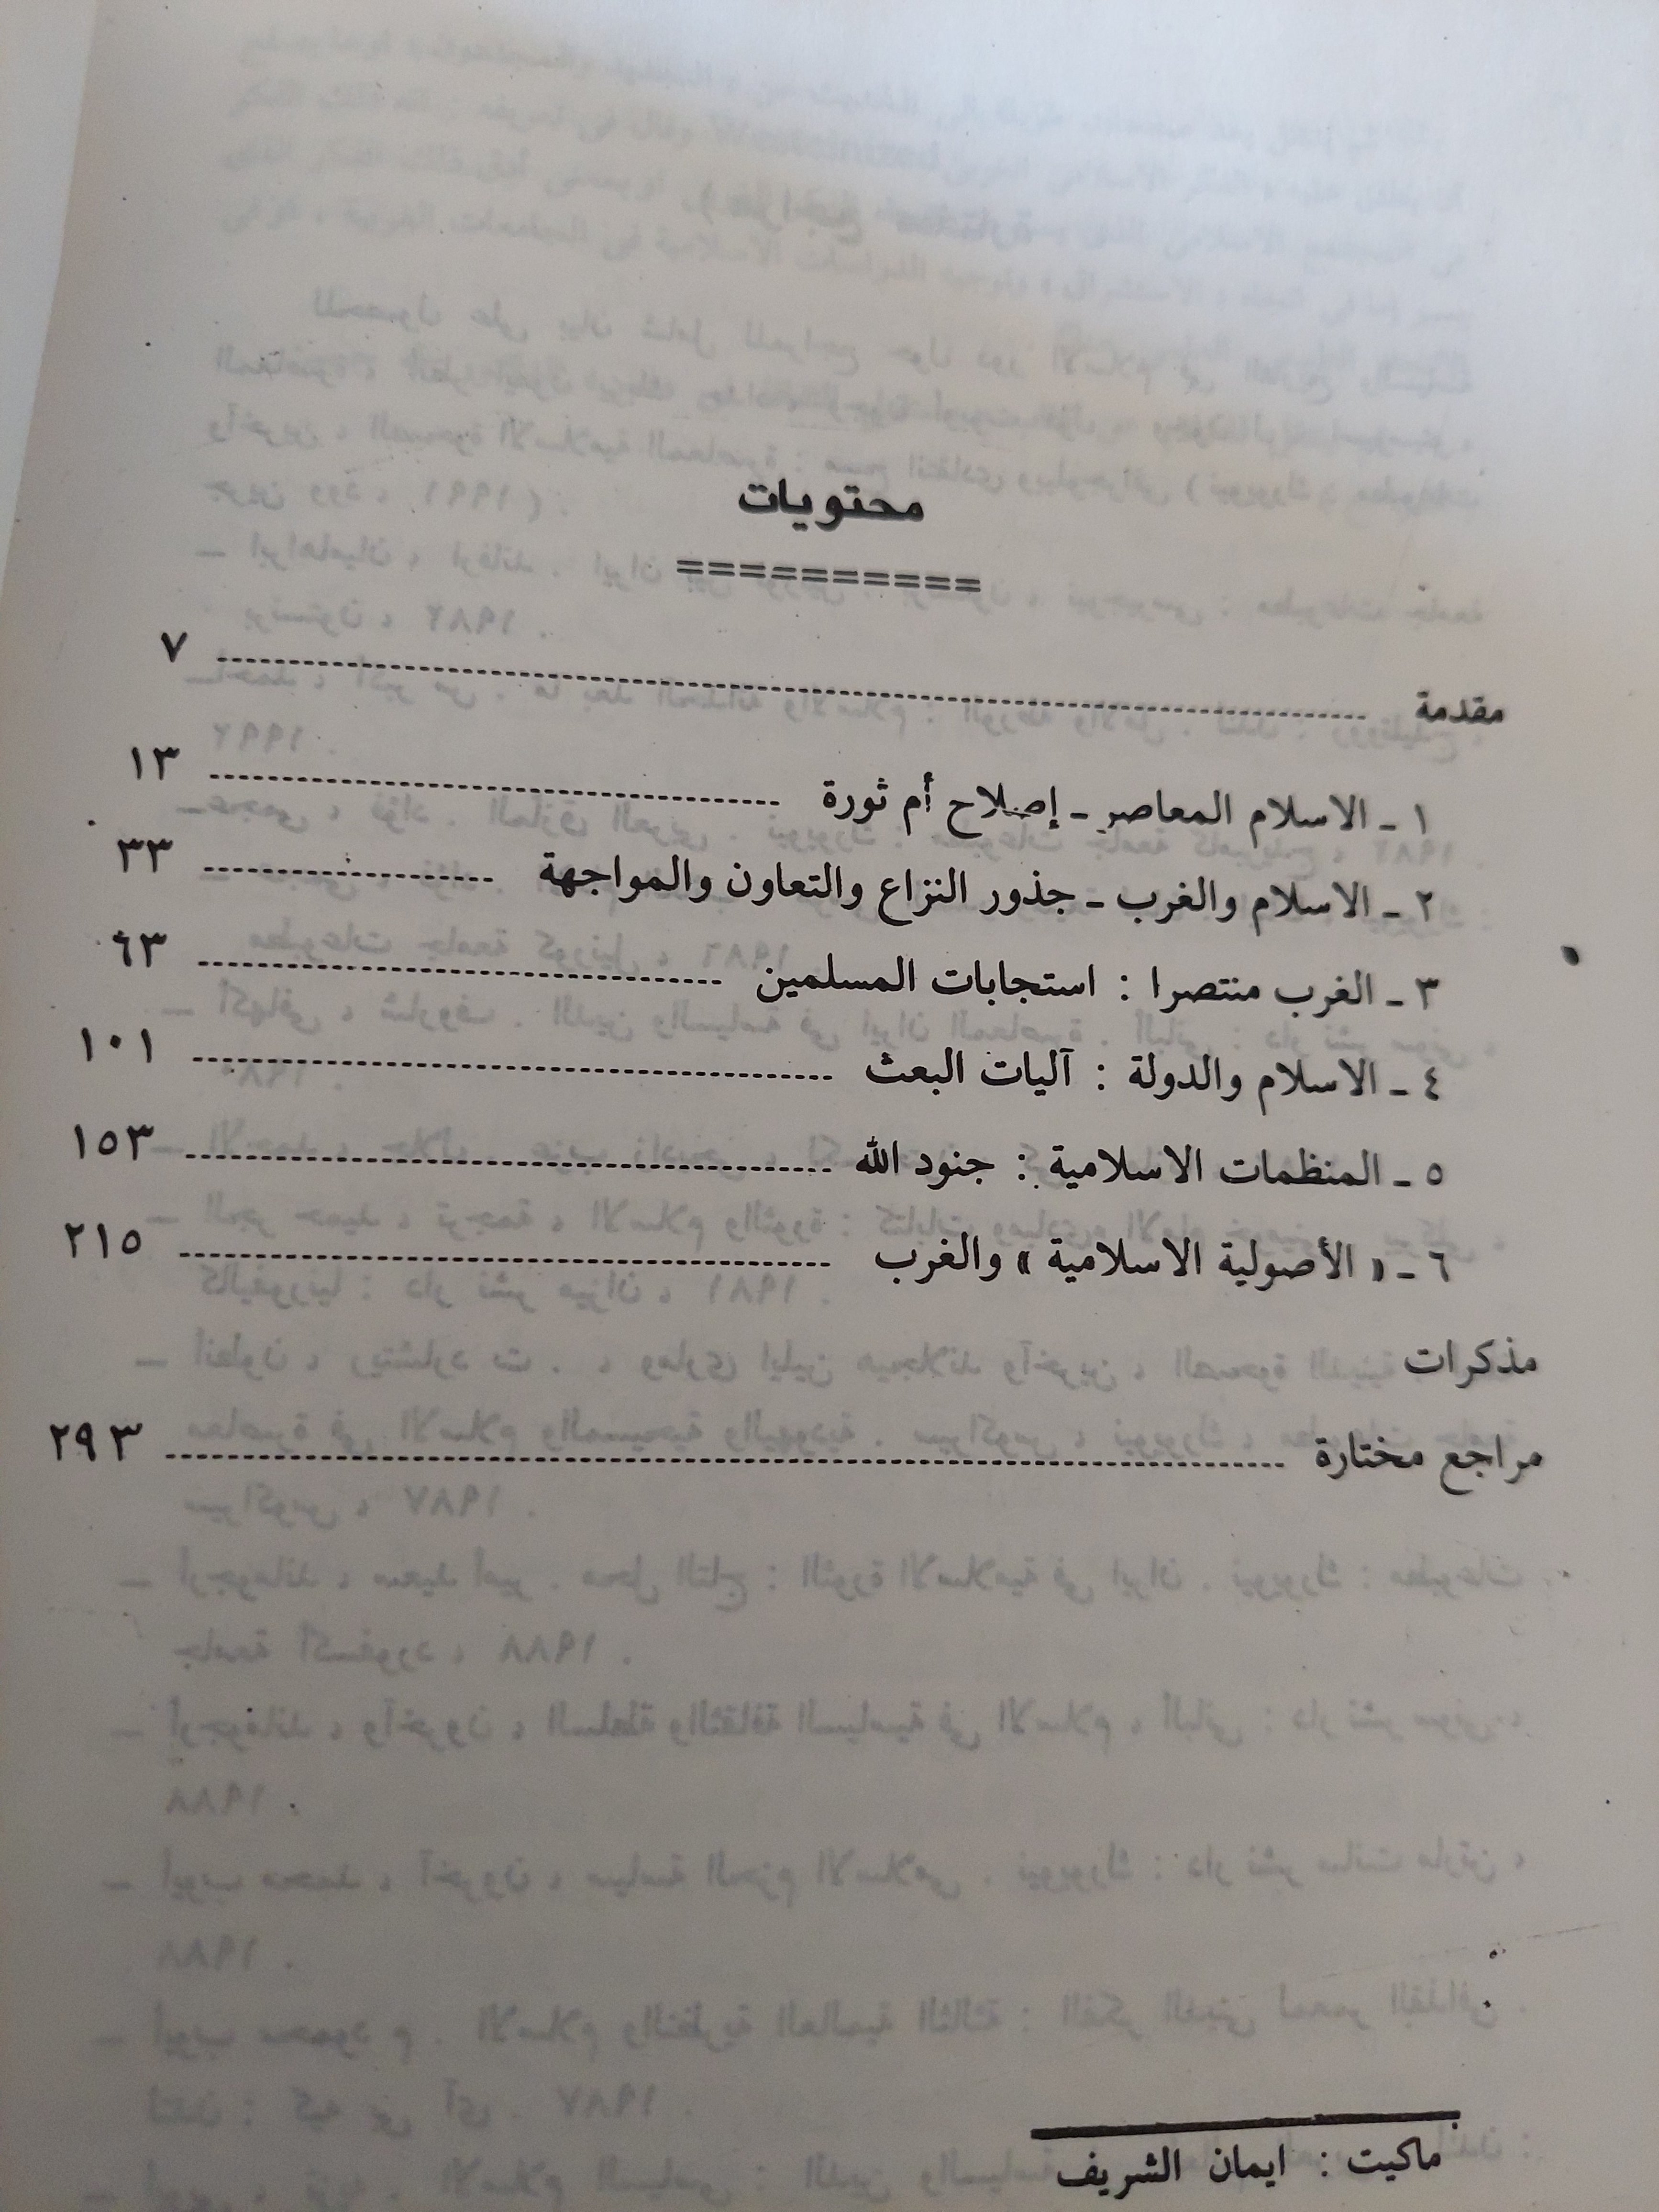 محتويات
==========
مقدمة ........................................ ٧
١ ـ الاسلام المعاصر ـ إصلاح أم ثورة ........................................ ١٣
٢ ـ الاسلام والغرب ـ جذور النزاع والتعاون والمواجهة ........................................ ٣٣
٣ ـ الغرب منتصرا : استجابات المسلمين ........................................ ٦٣
٤ ـ الاسلام والدولة : آليات البعث ........................................ ١٠١
٥ ـ المنظمات الاسلامية : جنود الله ........................................ ١٥٣
٦ ـ « الأصولية الاسلامية » والغرب ........................................ ٢١٥
مذكرات
مراجع مختارة ........................................ ٢٩٣
ماكيت : ايمان الشريف